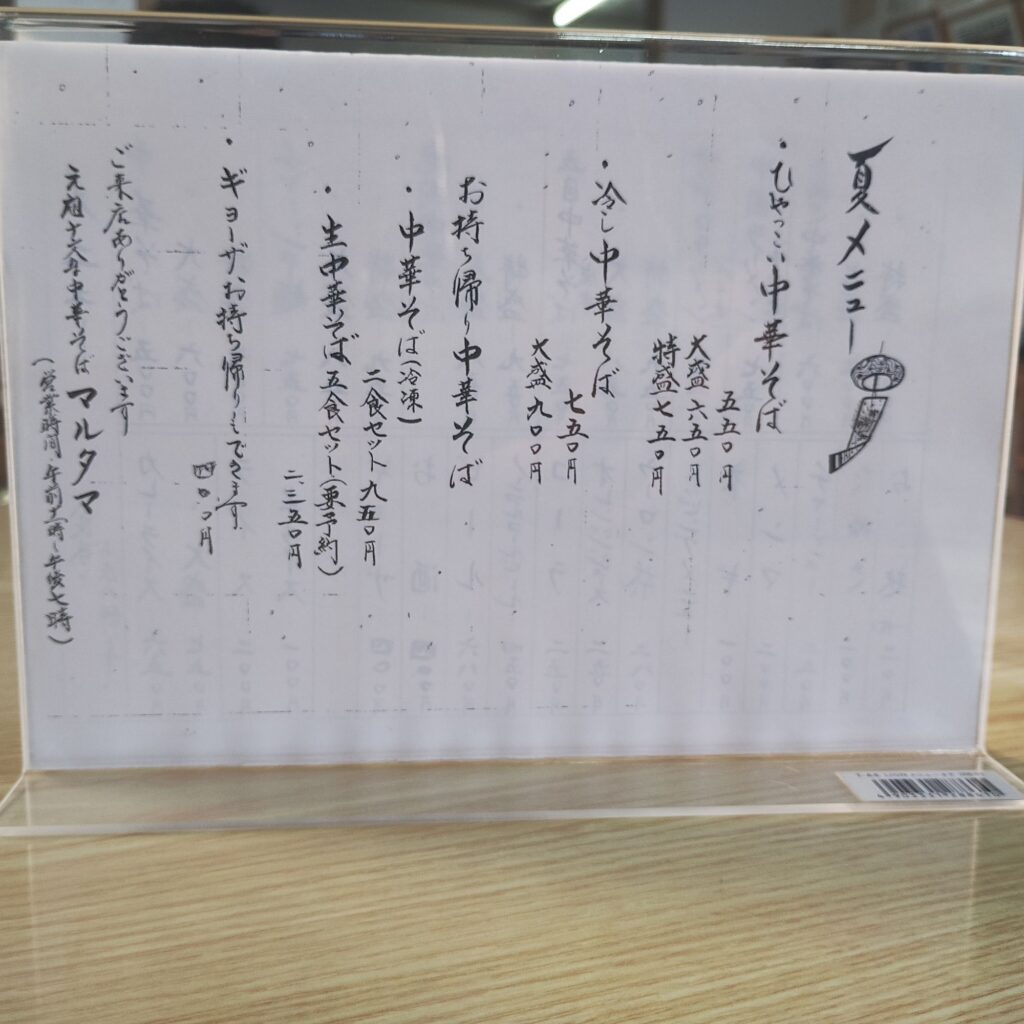 夏メニュー
・ひやっこい中華そば
五五〇円
大盛 六五〇円
特盛 七五〇円
・冷し中華そば
七五〇円
大盛 九〇〇円
お持ち帰り中華そば
・中華そば(冷凍)
二食セット 九五〇円
・生中華そば 五食セット(要予約)
二、三五〇円
・ギョーザお持ち帰りもできます
四〇〇円
ご来店ありがとうございます
元祖十文字中華そば マルタマ
(営業時間 午前十一時~午後七時)